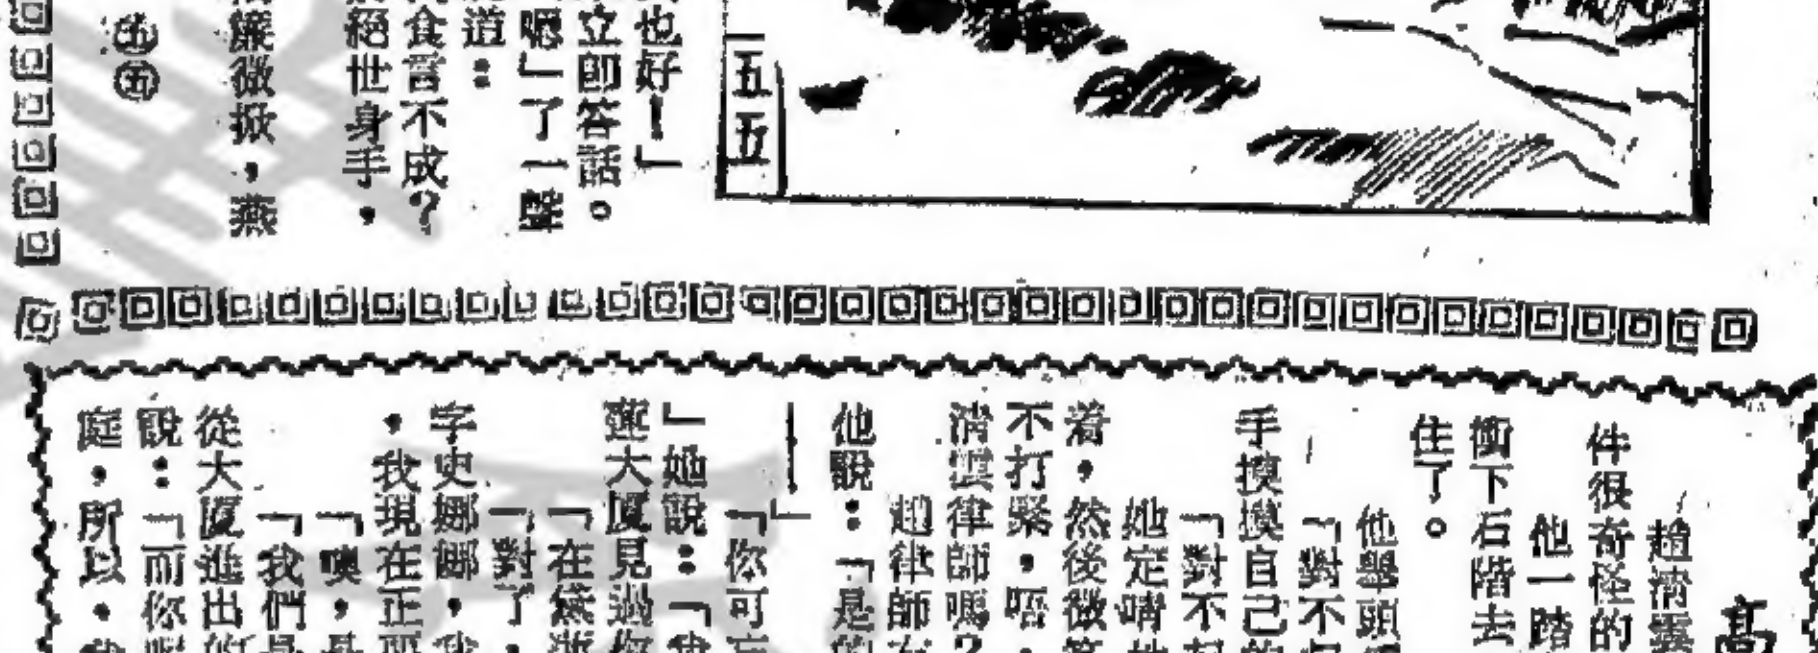 五五
也好！」
立即答話。
嗯」了一聲
道：
食言不成？
絕世身手，
簾微掀，燕
㊄
高
趙清雲
件很奇怪的
他一踏
衝下石階去
住了。
他舉頭
「對不
手摸摸自己的
「對不起
她定睛
着，然後微笑
不打緊，唔，
清雲律師嗎？
趙律師
他說：「是的
——」
「你可
」她說：「我
蓮大厦見過你
「在
「對了，
字史娜娜，我
，我現在正
「噢，
「我們是
從大厦進出的
說：「而你
庭，所以，我